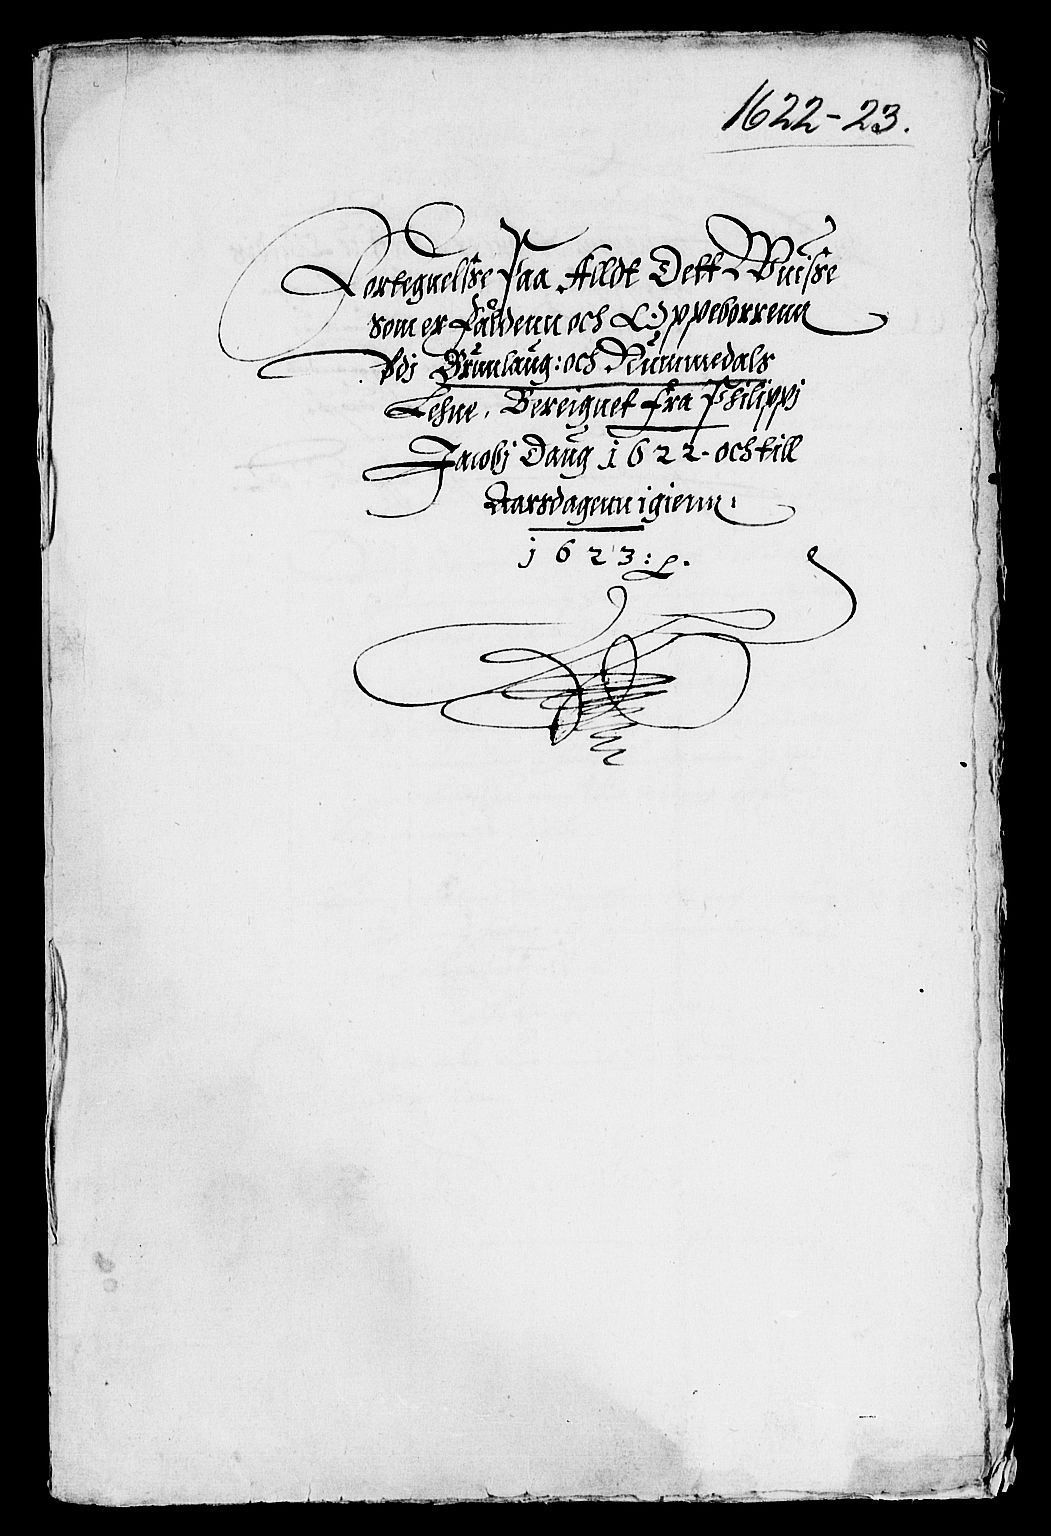 1622-23.
Fortegnelsse Paa Alldt Dett Wuisse
som er falldenn och Oppeborrenn
vdj Brunlaug: och Nummedals
Lehne, Bereignet fra Philippj
Jacobj Daug 1622. och till
Aarsdagenn igienn.
1623: